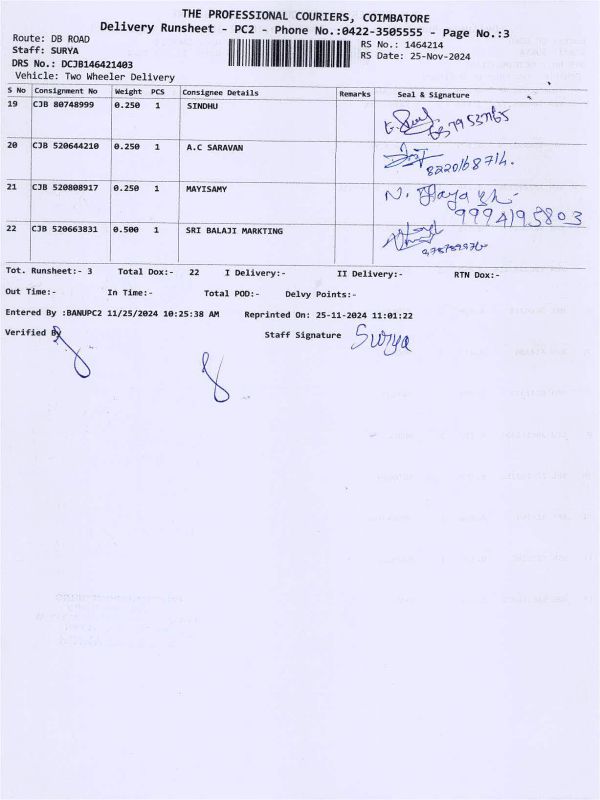 THE PROFESSIONAL COURIERS, COIMBATORE
Delivery Runsheet - PC2 - Phone No.:0422-3505555 - Page No.:3
Route: DB ROAD
Staff: SURYA
DRS No.: DCJB146421403
Vehicle: Two Wheeler Delivery
RS No.: 1464214
RS Date: 25-Nov-2024
S No Consignment No Weight PCS Consignee Details Remarks Seal & Signature
19 CJB 80748999 0.250 1 SINDHU
20 CJB 520644210 0.250 1 A.C SARAVAN
8220168714.
21 CJB 520808917 0.250 1 MAYISAMY
9994195803
22 CJB 520663831 0.500 1 SRI BALAJI MARKTING
Tot. Runsheet:- 3 Total Dox:- 22 I Delivery:- II Delivery:- RTN Dox:-
Out Time:- In Time:- Total POD:- Delvy Points:-
Entered By :BANUPC2 11/25/2024 10:25:38 AM Reprinted On: 25-11-2024 11:01:22
Verified By Staff Signature Surya